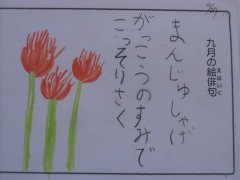 九月の絵俳句
えはいく
まんじゅしゃげ
がっこうのすみで
こっそりさく